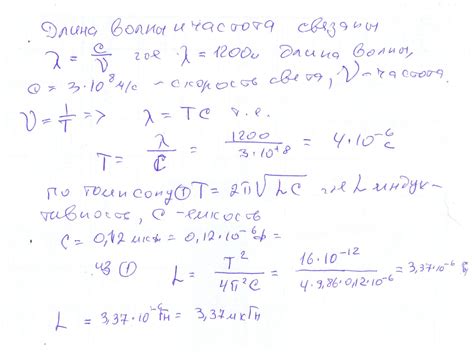 Длина волны и частота связаны
λ = c/ν где λ = 1200м длина волны,
c = 3·10⁸ м/с - скорость света, ν - частота.
ν = 1/T => λ = TC т.е.
T = λ/C = 1200/3·10⁸ = 4·10⁻⁶ с
по Томпсону ① T = 2π√LC где L индук-
тивность, C - емкость
C = 0,12 мкф = 0,12·10⁻⁶ ф =
из ① L = T²/4π²C = 16·10⁻¹²/4·9,86·0,12·10⁻⁶ = 3,37·10⁻⁶
L = 3,37·10⁻⁶ Гн = 3,37 мкГн